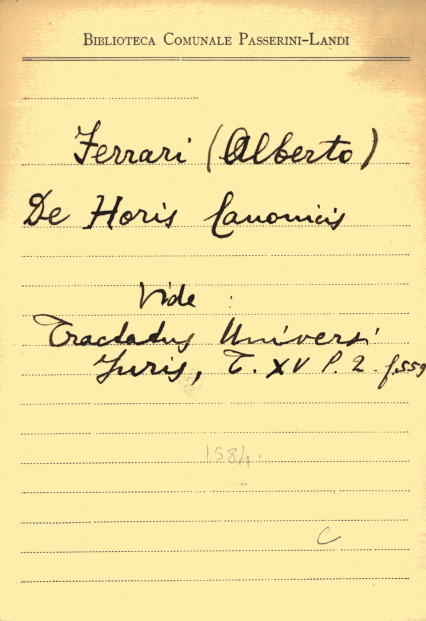 BIBLIOTECA COMUNALE PASSERINI-LANDI
Ferrari (Alberto)
De Horis Canonicis
Vide :
Tractatus Universi
Juris, T. XV P. 2 f. 559
1584.
C